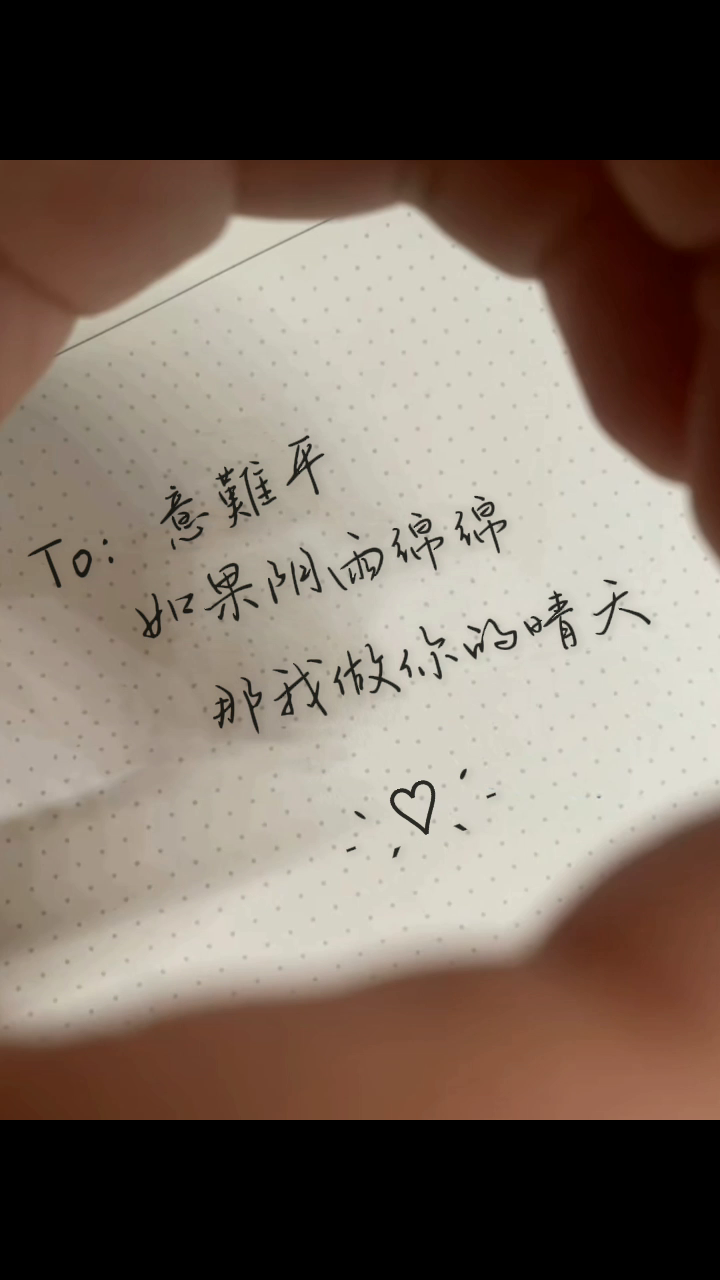 To: 意難平
如果阴雨绵绵
那我做你的晴天